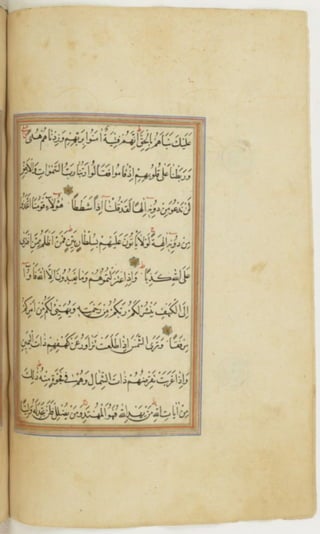 عَلَيْكَ نَبَأَهُمْ بِالْحَقِّ إِنَّهُمْ فِتْيَةٌ آمَنُوا بِرَبِّهِمْ وَزِدْنَاهُمْ هُدًى
وَرَبَطْنَا عَلَى قُلُوبِهِمْ إِذْ قَامُوا فَقَالُوا رَبُّنَا رَبُّ السَّمَوَاتِ وَالْأَرْضِ
لَنْ نَدْعُوَ مِنْ دُونِهِ إِلَهًا لَقَدْ قُلْنَا إِذًا شَطَطًا هَؤُلَاءِ قَوْمُنَا اتَّخَذُوا
مِنْ دُونِهِ آلِهَةً لَوْلَا يَأْتُونَ عَلَيْهِمْ بِسُلْطَانٍ بَيِّنٍ فَمَنْ أَظْلَمُ مِمَّنِ افْتَرَى
عَلَى اللَّهِ كَذِبًا وَإِذِ اعْتَزَلْتُمُوهُمْ وَمَا يَعْبُدُونَ إِلَّا اللَّهَ فَأْوُوا
إِلَى الْكَهْفِ يَنْشُرْ لَكُمْ رَبُّكُمْ مِنْ رَحْمَتِهِ وَيُهَيِّئْ لَكُمْ مِنْ أَمْرِكُمْ
مِرْفَقًا وَتَرَى الشَّمْسَ إِذَا طَلَعَتْ تَزَاوَرُ عَنْ كَهْفِهِمْ ذَاتَ الْيَمِينِ
وَإِذَا غَرَبَتْ تَقْرِضُهُمْ ذَاتَ الشِّمَالِ وَهُمْ فِي فَجْوَةٍ مِنْهُ ذَلِكَ
مِنْ آيَاتِ اللَّهِ مَنْ يَهْدِ اللَّهُ فَهُوَ الْمُهْتَدِ وَمَنْ يُضْلِلْ فَلَنْ تَجِدَ لَهُ وَلِيًّا